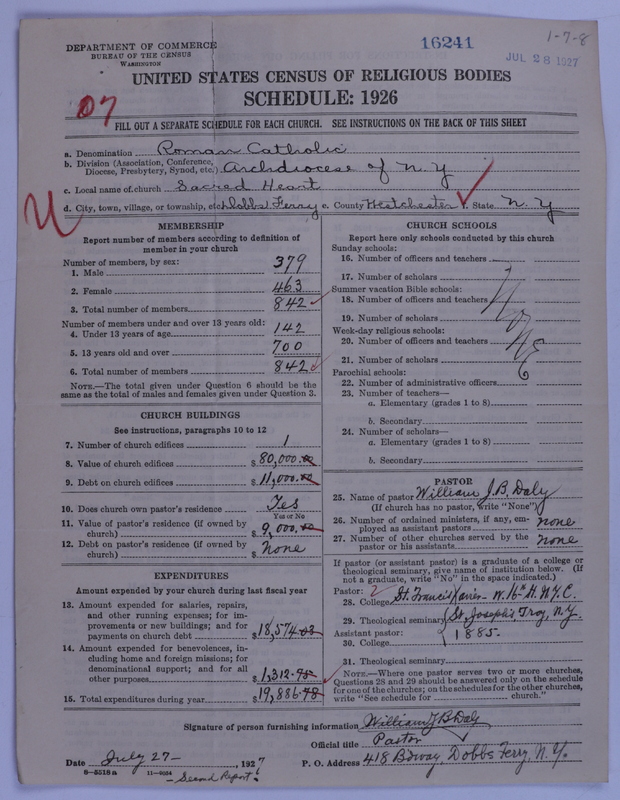 DEPARTMENT OF COMMERCE
BUREAU OF THE CENSUS
WASHINGTON
16241
1-7-8
JUL 28 1927
UNITED STATES CENSUS OF RELIGIOUS BODIES
SCHEDULE: 1926
07
FILL OUT A SEPARATE SCHEDULE FOR EACH CHURCH. SEE INSTRUCTIONS ON THE BACK OF THIS SHEET
a. Denomination Roman Catholic
b. Division (Association, Conference, Diocese, Presbytery, Synod, etc.) Archdiocese of N. Y
c. Local name of church Sacred Heart
d. City, town, village, or township, etc. Dobbs Ferry e. County Westchester f. State N. Y
MEMBERSHIP
Report number of members according to definition of
member in your church
Number of members, by sex:
1. Male 379
2. Female 463
3. Total number of members 842
Number of members under and over 13 years old:
4. Under 13 years of age 142
5. 13 years old and over 700
6. Total number of members 842
NOTE.—The total given under Question 6 should be
the same as the total of males and females given under Question 3.
CHURCH BUILDINGS
See instructions, paragraphs 10 to 12
7. Number of church edifices 1
8. Value of church edifices $ 80,000.00
9. Debt on church edifices $ 11,000.00
10. Does church own pastor's residence Yes
Yes or No
11. Value of pastor's residence (if owned by
church) $ 9,000.00
12. Debt on pastor's residence (if owned by
church) $ None
EXPENDITURES
Amount expended by your church during last fiscal year
13. Amount expended for salaries, repairs,
and other running expenses; for im-
provements or new buildings; and for
payments on church debt $ 18,574.03
14. Amount expended for benevolences, in-
cluding home and foreign missions; for
denominational support; and for all
other purposes $ 1,312.75
15. Total expenditures during year $ 19,886.78
CHURCH SCHOOLS
Report here only schools conducted by this church
Sunday schools:
16. Number of officers and teachers
17. Number of scholars
Summer vacation Bible schools:
18. Number of officers and teachers
19. Number of scholars
Week-day religious schools:
20. Number of officers and teachers
21. Number of scholars
NONE
Parochial schools:
22. Number of administrative officers
23. Number of teachers—
a. Elementary (grades 1 to 8)
b. Secondary
24. Number of scholars—
a. Elementary (grades 1 to 8)
b. Secondary
PASTOR
25. Name of pastor William J. B. Daly
(If church has no pastor, write "None")
26. Number of ordained ministers, if any, em-
ployed as assistant pastors none
27. Number of other churches served by the
pastor or his assistants none
If pastor (or assistant pastor) is a graduate of a college or
theological seminary, give name of institution below. (If
not a graduate, write "No" in the space indicated.)
Pastor:
28. College St. Francis Xavier - W. 16th St. N.Y.C.
29. Theological seminary St. Joseph's Troy, N.Y.
Assistant pastor: 1885.
30. College
31. Theological seminary
NOTE.—Where one pastor serves two or more churches,
Questions 28 and 29 should be answered only on the schedule
for one of the churches; on the schedules for the other churches,
write "See schedule for church."
Signature of person furnishing information William J B Daly
Official title Pastor
Date July 27- 1927 P. O. Address 418 B'dway, Dobbs Ferry, N.Y.
8-5518a 11-9034
- Second Report.